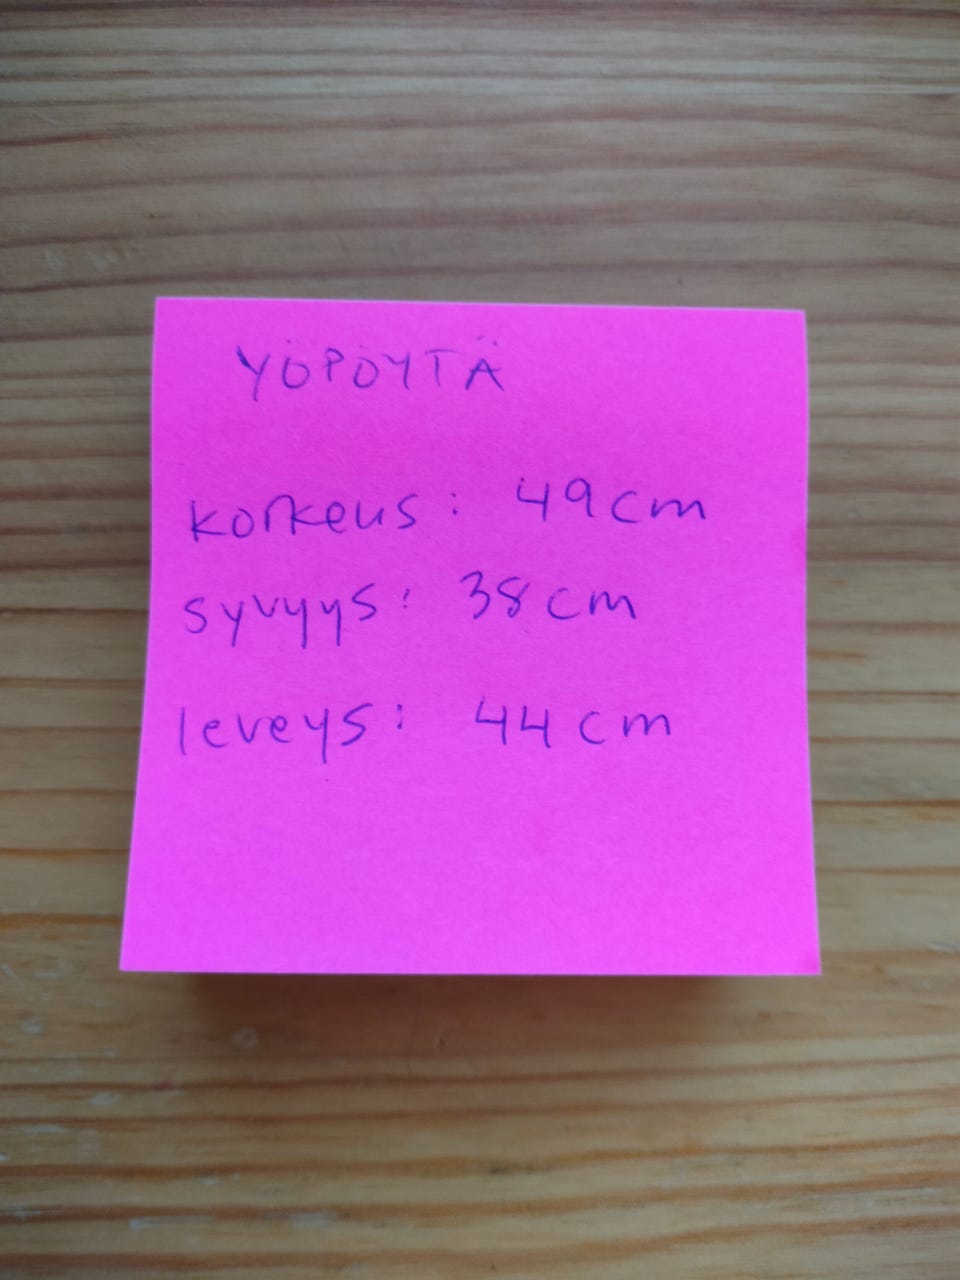 YÖPÖYTÄ
korkeus: 49 cm
syvyys: 38 cm
leveys: 44 cm